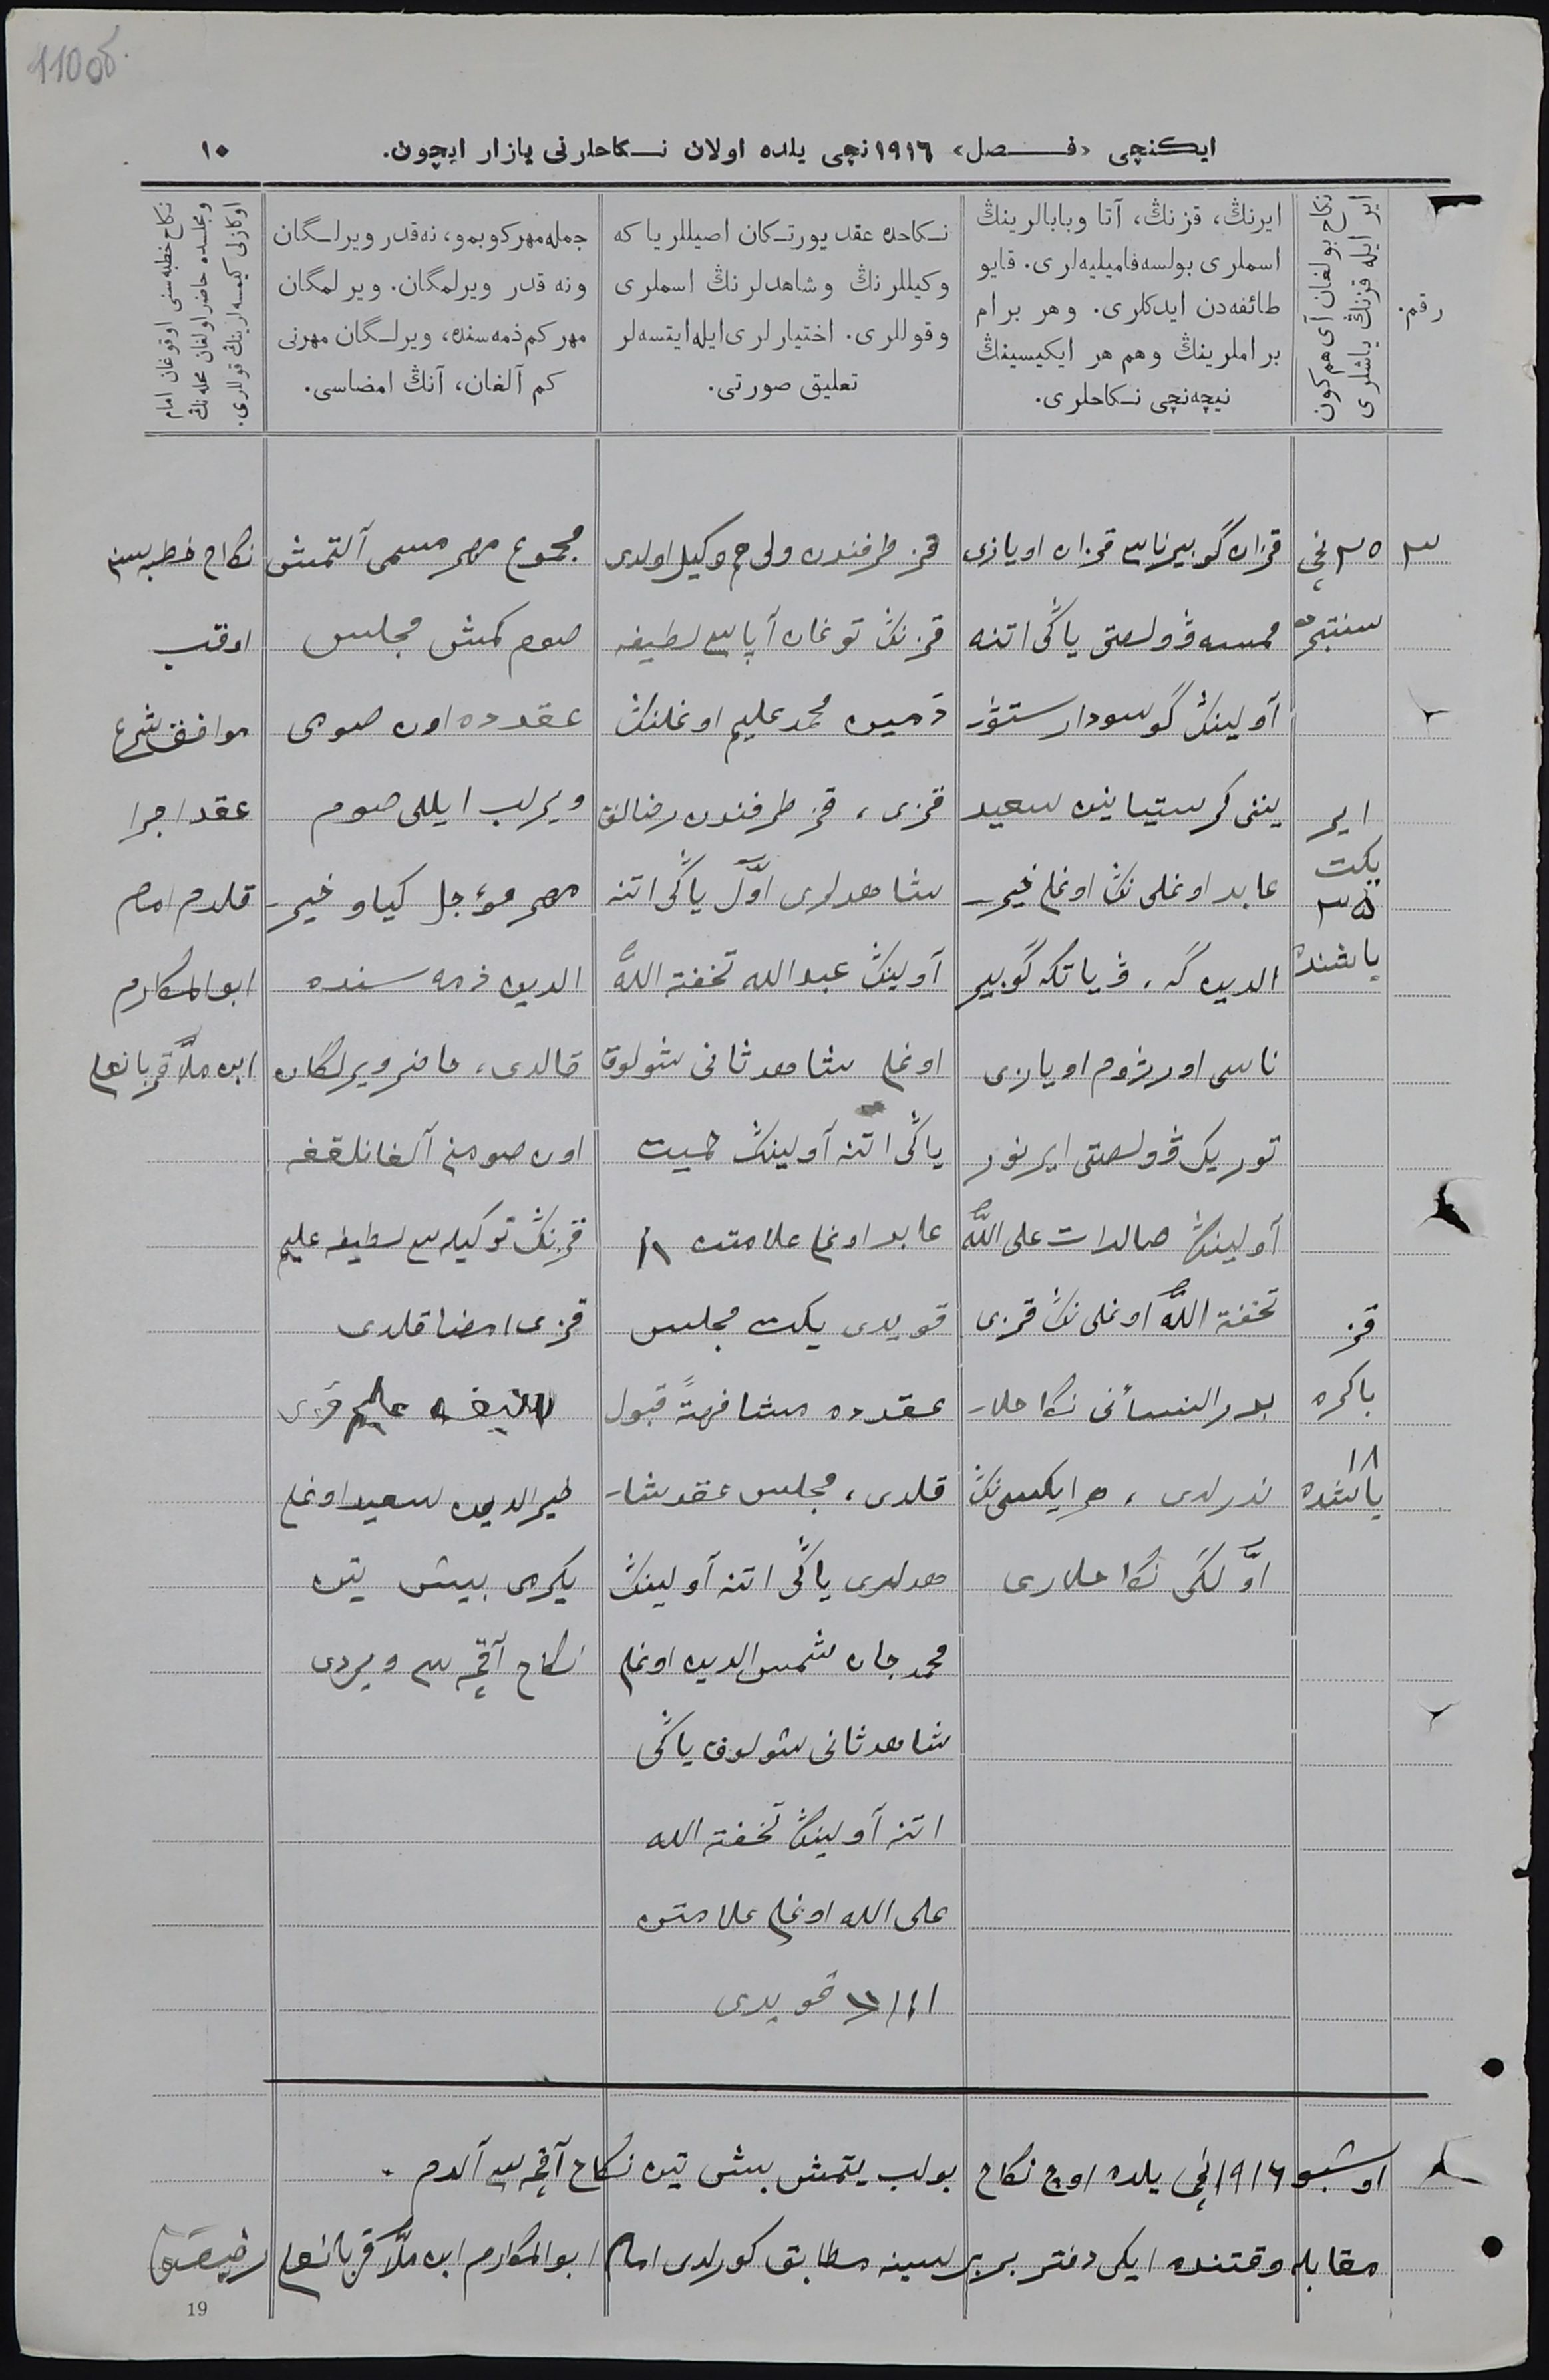 110 об.
ایکنچی «فصل» ١٩١٦نچی یلده اولان نکاحلرنی یازار ایچون.
١٠
رقم.
نکاح بولغان آی هم کون
ایر ایله قزنڭ یاشلری
ایرنڭ، قزنڭ، آتا وبابالرینڭ
اسملری بولسه فامیلیه‌لری. قایو
طائفه‌دن ایدکلری. وهر برام
براملرینڭ وهم هر ایکیسینڭ
نیچه‌نچی نکاحلری.
نکاحده عقد یورتکان اصیللر یا که
وکیللرنڭ وشاهدلرنڭ اسملری
وقوللری. اختیارلری ایله ایتسه‌لر
تعلیق صورتی.
جمله مهر کوبمو، نه‌قدر ویرلگان
ونه قدر ویرلمگان. ویرلمگان
مهر کم ذمه‌سنده، ویرلگان مهرنی
کم آلغان، آنڭ امضاسی.
نکاح خطبه‌سنی اوقوغان امام
ومجلسده حاضر اولغان محله‌نڭ
اوکازلی کیمسه‌لرینڭ قوللری.
٣
٢٥ نچی
سنتبر
ایر
یکت
٣٥
یاشنده
قز
باکره
١٨
یاشنده
قزان گوبیرناسی قزان اویازی
ممسه ڤولصتی یاڭی اتنه
آولینڭ گوسودارستۋ
یننی کرستیانین سعید
عابد اوغلی نڭ اوغلی خیر
الدین گه، ڤیاتکه گوبیر
ناسی اورژوم اویازی
توریک ڤولصتی ایرنور
آولینڭ صالدات علی الله
تحفة الله اوغلی نڭ قزی
بدر النسأنی نکاحلا
ندرلدی، هر ایکسی نڭ
اوّلگی نکاحلاری
قز طرفندن ولی هم وکیل اولدی
قزنڭ توغان آپاسی لطیفه
محمد علیم اوغلنڭ
قزی، قز طرفندن رضالق
شاهدلری اوّل یاڭی اتنه
آولینڭ عبدالله تحفة الله
اوغلی شاهد ثانی شولوق
یاڭی اتنه آولینڭ
عابد اوغلی علامتن
قویدی یکت مجلس
عقدده مشافهةً قبول
قلدی، مجلس عقد شا
هدلری یاڭی اتنه آولینڭ
محمدجان شمس الدین اوغلی
شاهد ثانی شولوق یاڭی
اتنه آولینڭ تحفة الله
علی الله اوغلی علامتن
قویدی
مجموع مهر مسمی آلتمش
صوم کمش مجلس
عقدده اون صومی
ویرلب ایللی صوم
مهر مؤجل کیاو خیر
الدین ذمه سنده
قالدی، حاضر ویرلگان
اون صومنی آلغانلقغه
قزنڭ توکیله سی لطیفه علیم
قزی امضا قلدی
لطیفه علیم قزی
خیر الدین سعید اوغلی
یکرمی بیش تین
نکاح آقچه سی ویردی
نکاح خطبه سین
اوقب
موافق شرع
عقد اجرا
قلدم امام
ابوالمکارم
ابن ملّا قربانعلی
اوشبو ١٩١٦نچی یلده اوچ نکاح بولب یتمش بیش تین نکاح آقچه سی آلدم.
مقابله وقتنده ایکی دفتر بر برسینه مطابق کورلدی امام ابوالمکارم ابن ملّا قربانعلی
19